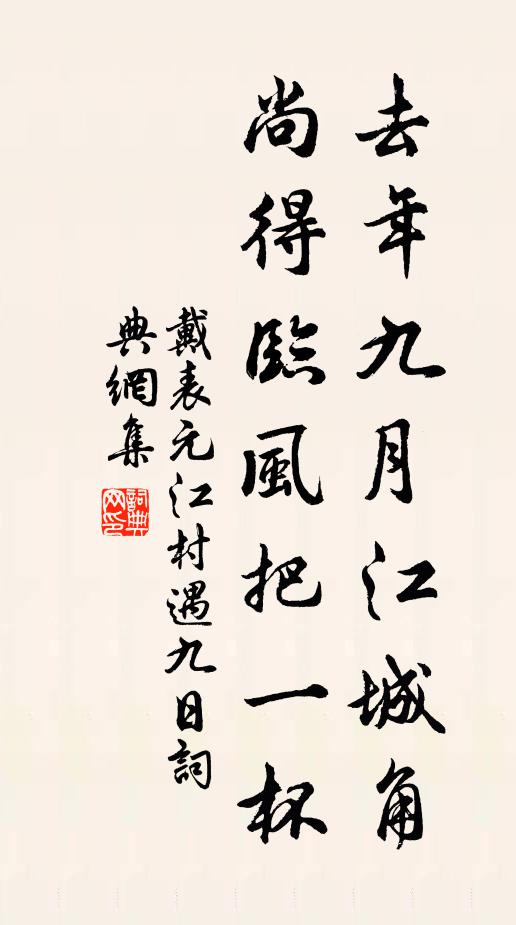 去年九月江城角
尚得臨風把一杯
戴表元江村遇九日詞
典網集
詞典
网印